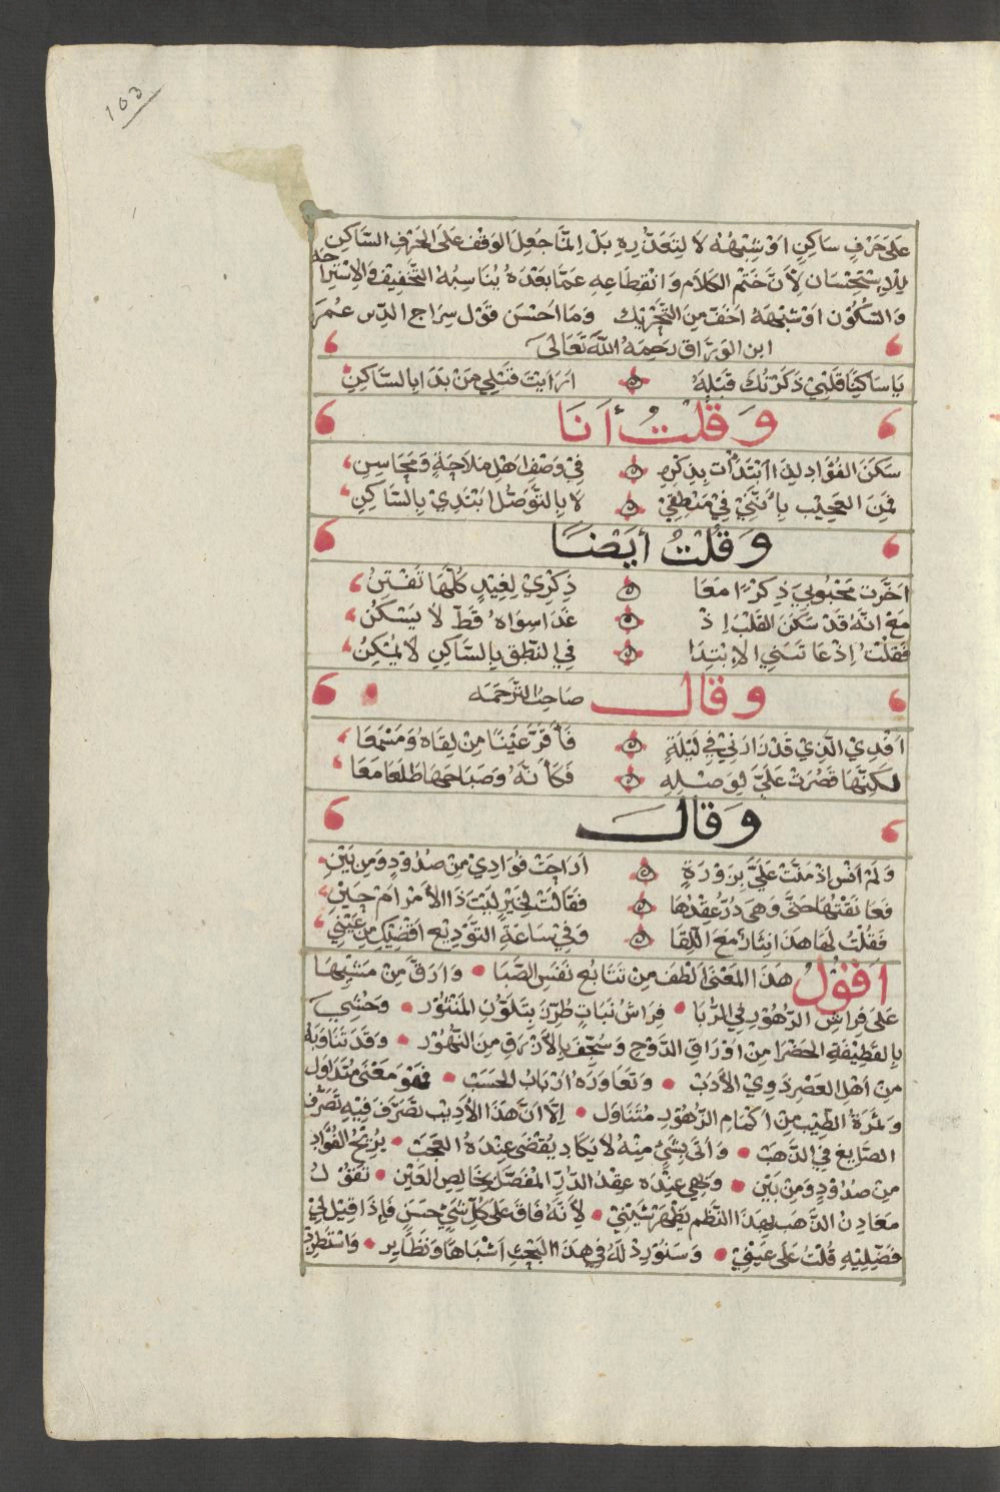 103
عَلَى حَرْفٍ سَاكِنٍ اَوْ شِبْهُهُ لَا لِتَعَذُّرِهِ بَلْ اِنَّمَا جُعِلَ الوَقْفُ عَلَى الحَرْفِ السَّاكِنِ
لِلْاِسْتِحْسَانِ لِأَنَّ خَتْمَ الكَلَامِ وَانْقِطَاعِهِ عَمَّا بَعْدَهُ يُنَاسِبُهُ التَّخْفِيفُ وَالاِسْتِرَاحَه
وَالسُّكُوْنُ اَوْ شِبْهُهُ اَخَفُّ مِنَ التَّحْرِيْكِ وَمَا اَحْسَنَ قَوْلَ سِرَاجِ الدِّينِ عُمَرَ
ابن الوَرَّاقِ رَحِمَهُ اللَّهُ تَعَالَى
يَا سَاكِنًا قَلْبِيْ ذَكَرْتُكَ قَبْلَهُ ۞ اَرَاَيْتَ قَبْلِي مَنْ بَدَا بِالسَّاكِنِ
وَقُلْتُ أَنَا
سَكَنَ الفُؤَادَ لِذَا ابْتَدَأْتُ بِذِكْرِهِ ۞ فِيْ وَصْفِ اَهْلِ مَلَاحَةٍ وَمَحَاسِنِ
فَمِنَ العَجِيْبِ بِأَنَّنِيْ فِيْ مَنْطِقِيْ ۞ لَا بِالتَّوَصُّلِ ابْتَدِيْ بِالسَّاكِنِ
وَقُلْتُ أَيْضًا
اَخَّرْتُ مَحْبُوبِيَ ذِكْرًا مَعَا ۞ ذِكْرِيْ لِغِيْدٍ كُلُّهَا تُفْتِنُ
مَعْ اَنَّهُ قَدْ سَكَنَ القَلْبَ اِذْ ۞ غَدَا سِوَاهُ قَطُّ لَا يَسْكُنُ
فَقُلْتُ اِذْ عَاتَبَنِي الاِبْتِدَا ۞ فِي النُّطْقِ بِالسَّاكِنِ لَا يُمْكِنُ
وَقَالَ صَاحِبُ التَّرْجَمَه
اَفْدِيْ الَّذِيْ قَدْ زَارَنِيْ فِيْ لَيْلَةٍ ۞ فَأَقَرَّ عَيْنًا مِنْ لِقَاهُ وَمَسْمَعَا
لَكِنَّهَا قَصُرَتْ عَلَيَّ لِوَصْلِهِ ۞ فَكَأَنَّهُ وَصَبَاحَهَا طَلَعَا مَعَا
وَقَالَ
وَلَمْ اَنْسَ اِذْ مَنَّتْ عَلَيَّ بِزَوْرَةٍ ۞ اَرَاحَتْ فُوَادِيْ مِنْ صُدُوْدٍ وَمِنْ بَيْنِ
فَعَانَقْتُهَا حَتَّى وَهَى دُرُّ عِقْدِهَا ۞ فَقَالَتْ لِخَيْرٍ لَيْتَ ذَا الأَمْرُ اَمْ حَيْنِ
فَقُلْتُ لَهَا هَذَا نِثَارٌ مَعَ اللِّقَا ۞ وَفِيْ سَاعَةِ التَّوْدِيْعِ اَقْضِيْكِ مِنْ عَيْنِي
اَقُوْلُ هَذَا المَعْنَى اَلْطَفُ مِنْ تَتَابُعِ نَفَسِ الصَّبَا • وَاَرَقُّ مِنْ مَشْيِهَا
عَلَى فِرَاشِ الزُّهُوْرِ فِي الرُّبَا • فِرَاشُ نَبَاتٍ طُرِّزَ بِتَلَوُّنِ المَنْثُوْرِ • وَحُشِيَ
بِالقَطِيْفَةِ الخَضْرَا مِنْ اَوْرَاقِ الدَّوْحِ وَسُجِّفَ بِالأَزْرَقِ مِنَ النُّهُوْرِ • وَقَدْ تَنَاوَبَهُ
مِنْ اَهْلِ العَصْرِ ذَوِيْ الأَدَبْ • وَتَعَاوَرَهُ اَرْبَابُ الحَسَبْ • فَهْوَ مَعْنَى مُتَدَاوَل
وَثَمَرَةُ الطِّيْبِ مِنْ اَكْمَامِ الزُّهُوْرِ مُتَنَاوَل • اِلَّا اَنَّ هَذَا الأَدِيْبَ تَصَرَّفَ فِيْهِ تَصَرُّفَ
الصَّايِغِ فِي الذَّهَبْ • وَاَتَى بِشَيْ مِنْهُ لَا يَكَادُ يُقْضَى عِنْدَهُ العَجَبْ • يُرِيْحُ الفُؤَادَ
مِنْ صُدُوْدٍ وَمِنْ بَيْن • وَيَهِيْ عِنْدَهُ عِقْدُ الدُّرِّ المُفَصَّلِ بِخَالِصِ العَيْن • تَقُوْلُ
مَعَادِنُ الذَّهَبِ بِهَذَا النَّظْمِ يَظْهَرُ شَيْنِيْ • لِأَنَّهُ فَاقَ عَلَى كُلِّ شَيْ حَسَنٍ فَإِذَا قِيْلَ لِيْ
فَضِّلِيْهِ قُلْتُ عَلَى عَيْنِيْ • وَسَنُوْرِدُ لَهُ فِي هَذَا البَحْثِ اَشْبَاهًا وَنَظَايِر • وَاَسْتَطْرِدُ